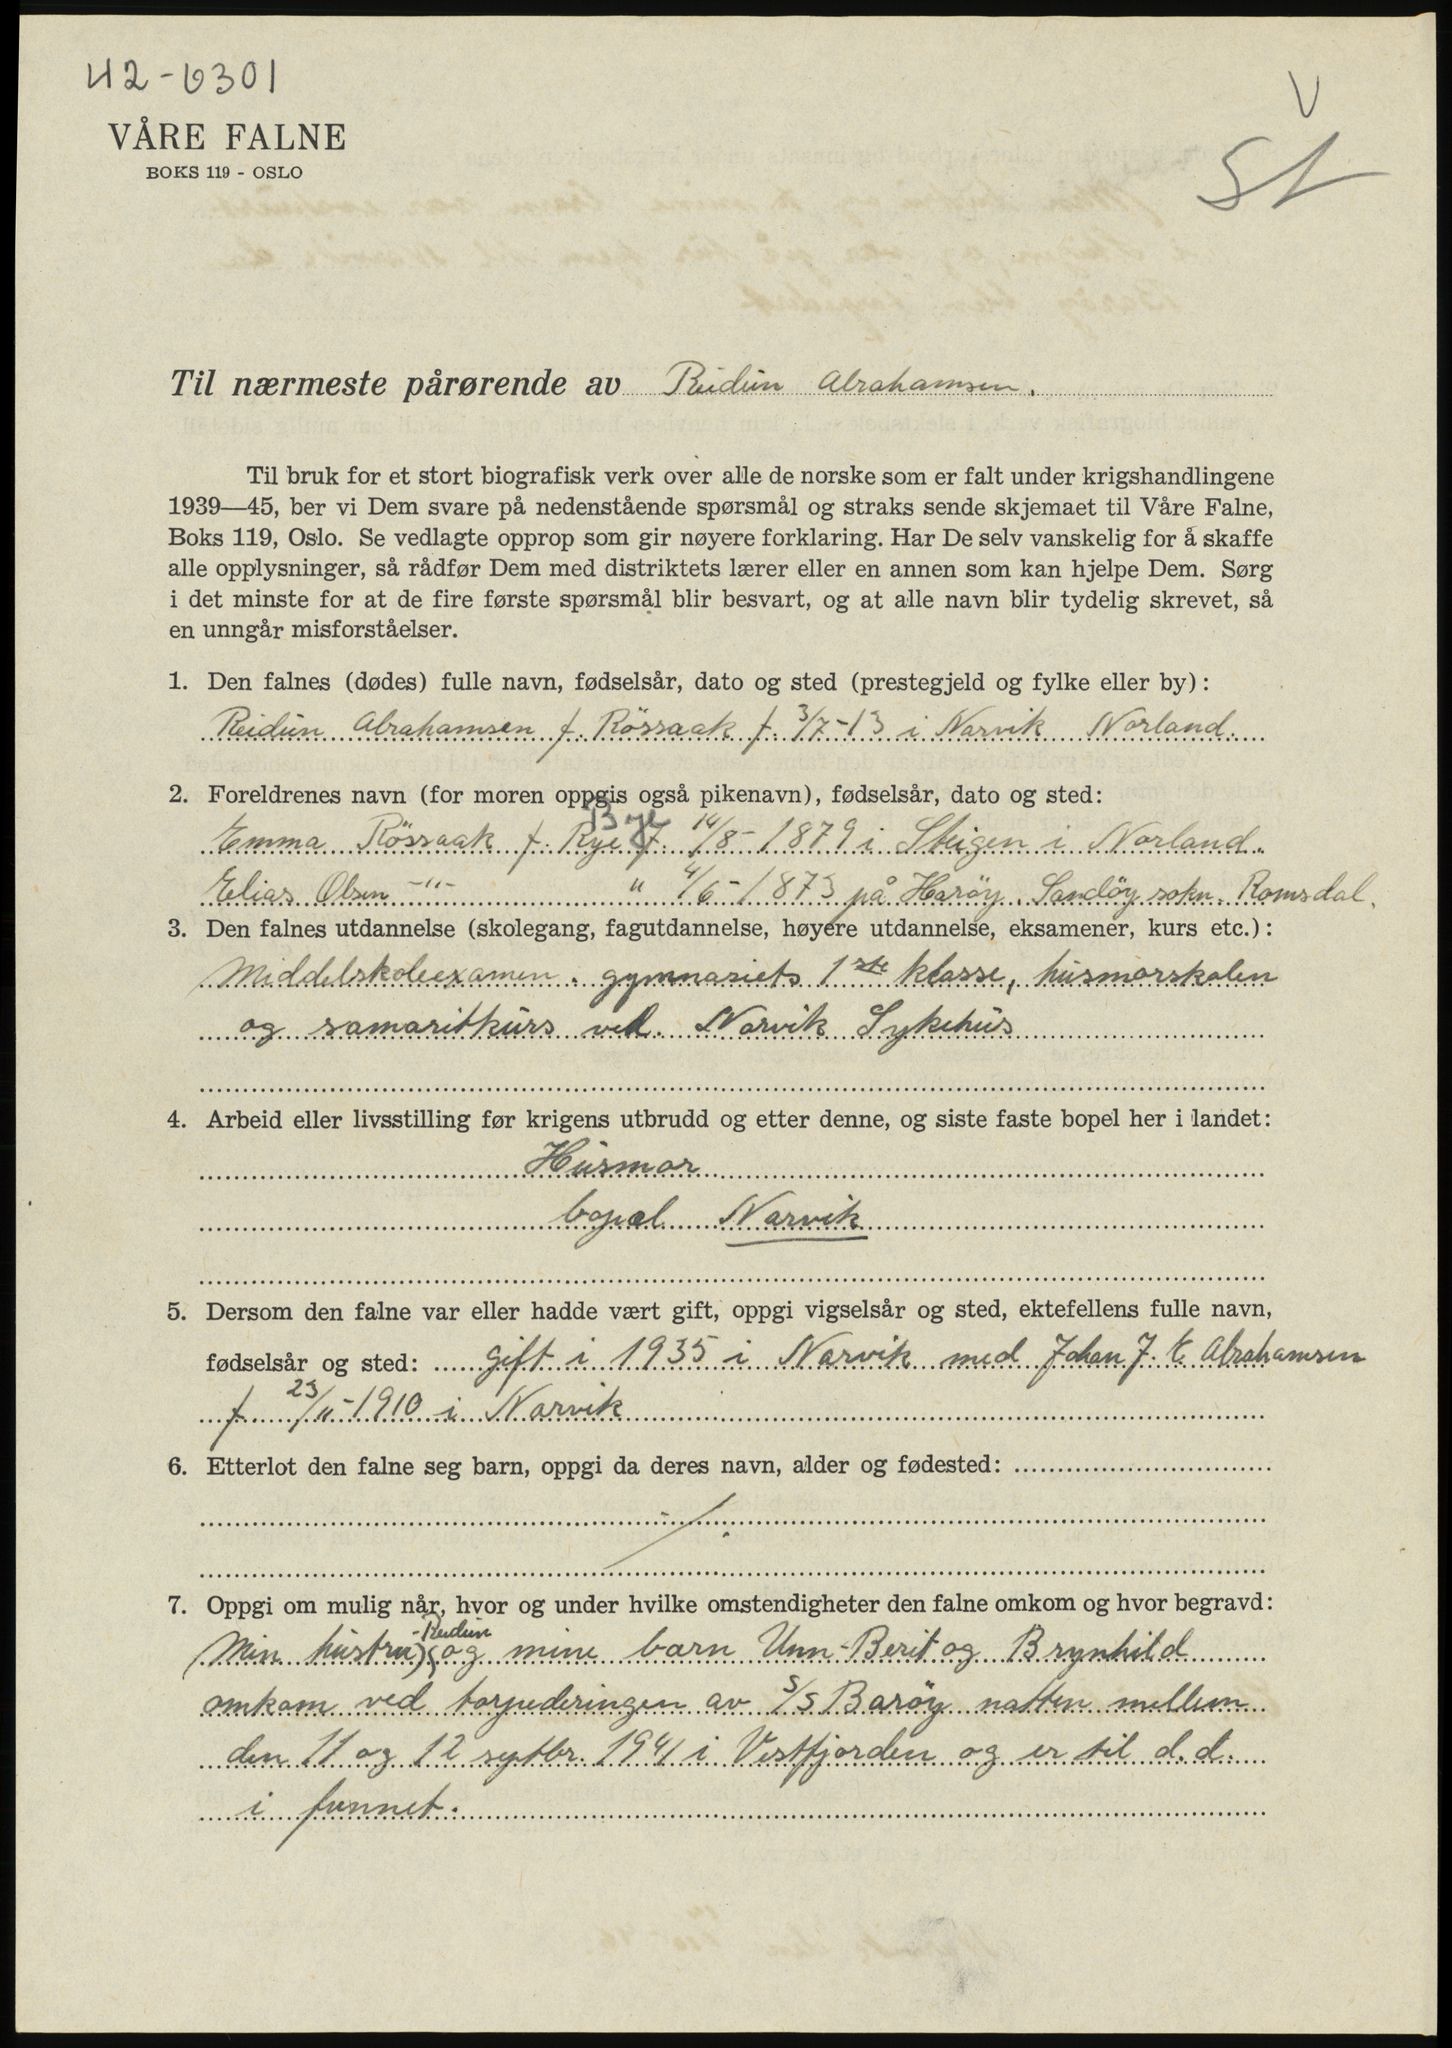 42-0301
VÅRE FALNE
BOKS 119 - OSLO
V
St
Til nærmeste pårørende av Reidun Abrahamsen.
Til bruk for et stort biografisk verk over alle de norske som er falt under krigshandlingene
1939—45, ber vi Dem svare på nedenstående spørsmål og straks sende skjemaet til Våre Falne,
Boks 119, Oslo. Se vedlagte opprop som gir nøyere forklaring. Har De selv vanskelig for å skaffe
alle opplysninger, så rådfør Dem med distriktets lærer eller en annen som kan hjelpe Dem. Sørg
i det minste for at de fire første spørsmål blir besvart, og at alle navn blir tydelig skrevet, så
en unngår misforståelser.
1. Den falnes (dødes) fulle navn, fødselsår, dato og sted (prestegjeld og fylke eller by):
Reidun Abrahamsen f. Rössaak f. 3/7-13 i Narvik Norland.
2. Foreldrenes navn (for moren oppgis også pikenavn), fødselsår, dato og sted:
Bye
Emma Rössaak f. Rye f. 14/8-1879 i Steigen i Norland.
Elias Olsen -"- " 4/6-1873 på Haröy. Sandöy sokn. Romsdal.
3. Den falnes utdannelse (skolegang, fagutdannelse, høyere utdannelse, eksamener, kurs etc.):
Middelskoleexamen. gymnasiets 1ste klasse, husmorskolen
og samaritkurs ved. Narvik Sykehus
4. Arbeid eller livsstilling før krigens utbrudd og etter denne, og siste faste bopel her i landet:
Husmor
bopel Narvik
5. Dersom den falne var eller hadde vært gift, oppgi vigselsår og sted, ektefellens fulle navn,
fødselsår og sted: gift i 1935 i Narvik med Johan J. E. Abrahamsen
f. 23/11-1910 i Narvik
6. Etterlot den falne seg barn, oppgi da deres navn, alder og fødested:
7. Oppgi om mulig når, hvor og under hvilke omstendigheter den falne omkom og hvor begravd:
-Reidun
Min hustru) (og mine barn Unn-Berit og Brynhild
omkom ved torpederingen av S/S Baröy natten mellem
den 11 og 12 septbr. 1941 i Vestfjorden og er til d.d.
i funnet.